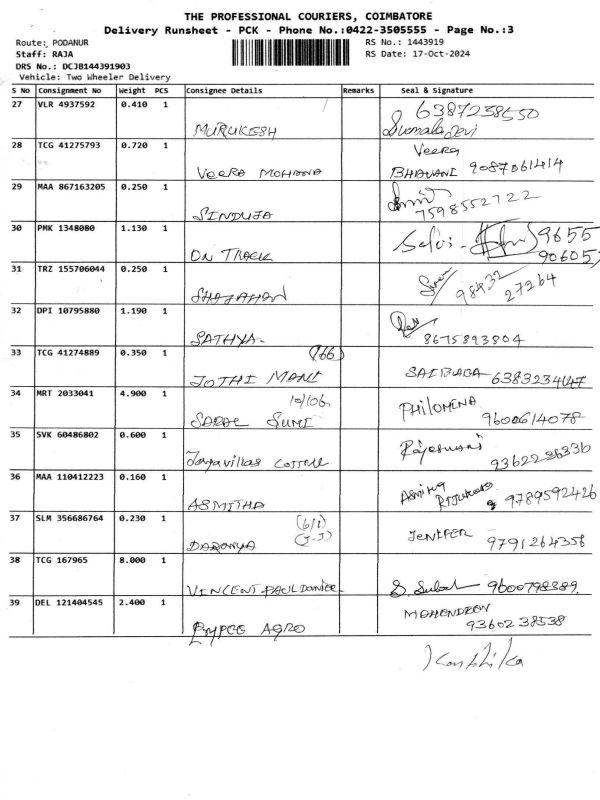 THE PROFESSIONAL COURIERS, COIMBATORE
Delivery Runsheet - PCK - Phone No.:0422-3505555 - Page No.:3
Route: PODANUR RS No.: 1443919
Staff: RAJA RS Date: 17-Oct-2024
DRS No.: DCJB144391903
Vehicle: Two Wheeler Delivery
S No Consignment No Weight PCS Consignee Details Remarks Seal & Signature
27 VLR 4937592 0.410 1 6387238550
MURUKESH
28 TCG 41275793 0.720 1 Veera
VEERA MOHANA BHAVANI 9087061414
29 MAA 867163205 0.250 1
SINDUJA 7598552722
30 PMK 1348080 1.130 1 9655
ON TRACK 90605
31 TRZ 155706044 0.250 1
SHAJAHAN 98432 27264
32 DPI 10795880 1.190 1
SATHYA 8675893804
33 TCG 41274889 0.350 1 (166)
JOTHI MANI SAIBABA 6383234647
34 MRT 2033041 4.900 1 10/106 PHILOMINA
SUMI 9600614078
35 SVK 60486802 0.600 1
9362236330
36 MAA 110412223 0.160 1
ASMITHA 9789592426
37 SLM 356686764 0.230 1 (6/1) JENIFER
(J-J) 9791264356
38 TCG 167965 8.000 1
VINCENT PAUL 9600798389
39 DEL 121404545 2.400 1
AGRO 9360238538